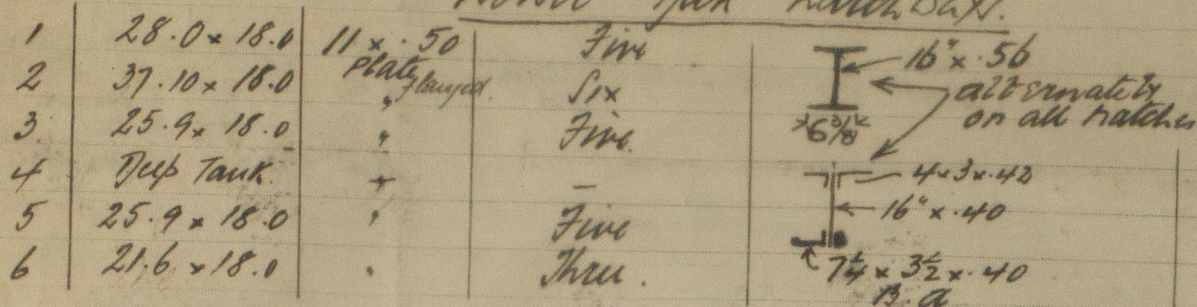 Hatch
1 28.0 × 18.0 11 × .50 Five 16" × .56
Plate flanged.
2 37.10 × 18.0 " Six alternately
on all hatches
3 25.9 × 18.0 " Five. 6 3/8"
4 Deep Tank. + – 4 × 3 × .42
5 25.9 × 18.0 " Five 16" × .40
6 21.6 × 18.0 " Three. 7 1/4 × 3 1/2 × .40
B. a